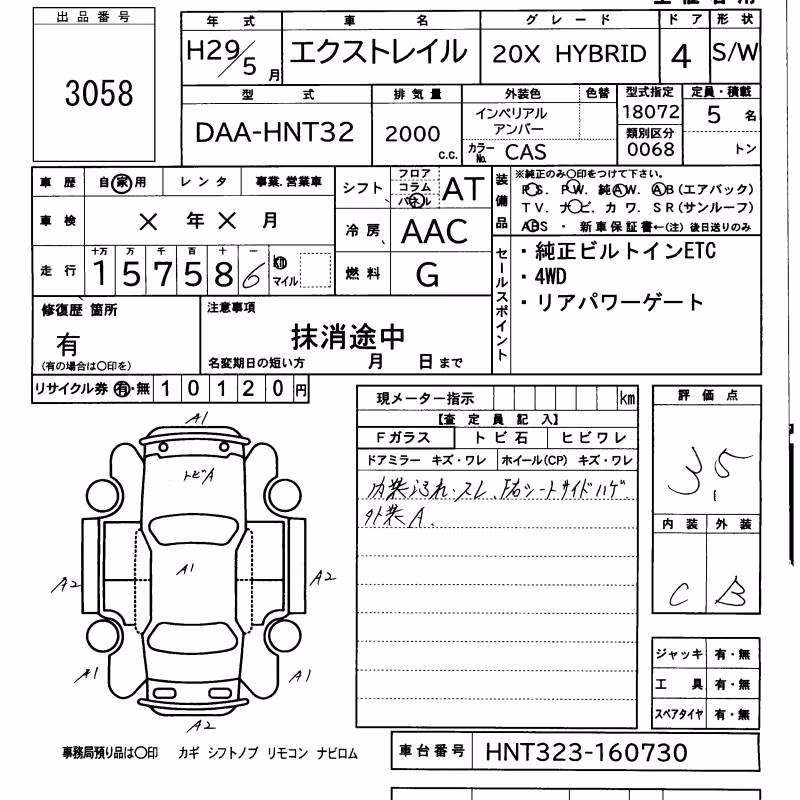 出品番号
3058
年式 車名 グレード ドア 形状
H29/5月 エクストレイル 20X HYBRID 4 S/W
型式 排気量 外装色 色替 型式指定 定員・積載
DAA-HNT32 2000 c.c. インペリアルアンバー 18072 5 名
カラーNo. CAS 類別区分 0068 トン
車歴 自家用 レンタ 事業.営業車
車検 × 年 × 月
走行 十万 万 千 百 十 一
157586 km マイル
シフト フロア コラム パネル AT
冷房 AAC
燃料 G
装備品 ※純正のみ〇印をつけて下さい。
P S. P W. 純A W. A B (エアバック)
T V. ナビ. カワ. S R (サンルーフ)
ABS ・ 新車保証書←(注) 後日送りのみ
セールスポイント
・純正ビルトインETC
・4WD
・リアパワーゲート
修復歴 箇所
有
(有の場合は〇印を)
注意事項
抹消途中
名変期日の短い方 月 日まで
リサイクル券 有・無 10120円
現メーター指示 km
【査定員記入】
Fガラス トビ石 ヒビワレ
ドアミラー キズ・ワレ ホイール(CP) キズ・ワレ
内装汚れ・スレ、F右シートサイドハゲ
外装A.
評価点
3.5
内装 外装
C B
A1
トビA
A1
A2 A2
A1 A1
A2
ジャッキ 有・無
工具 有・無
スペアタイヤ 有・無
事務局預り品は〇印 カギ シフトノブ リモコン ナビロム
車台番号 HNT323-160730